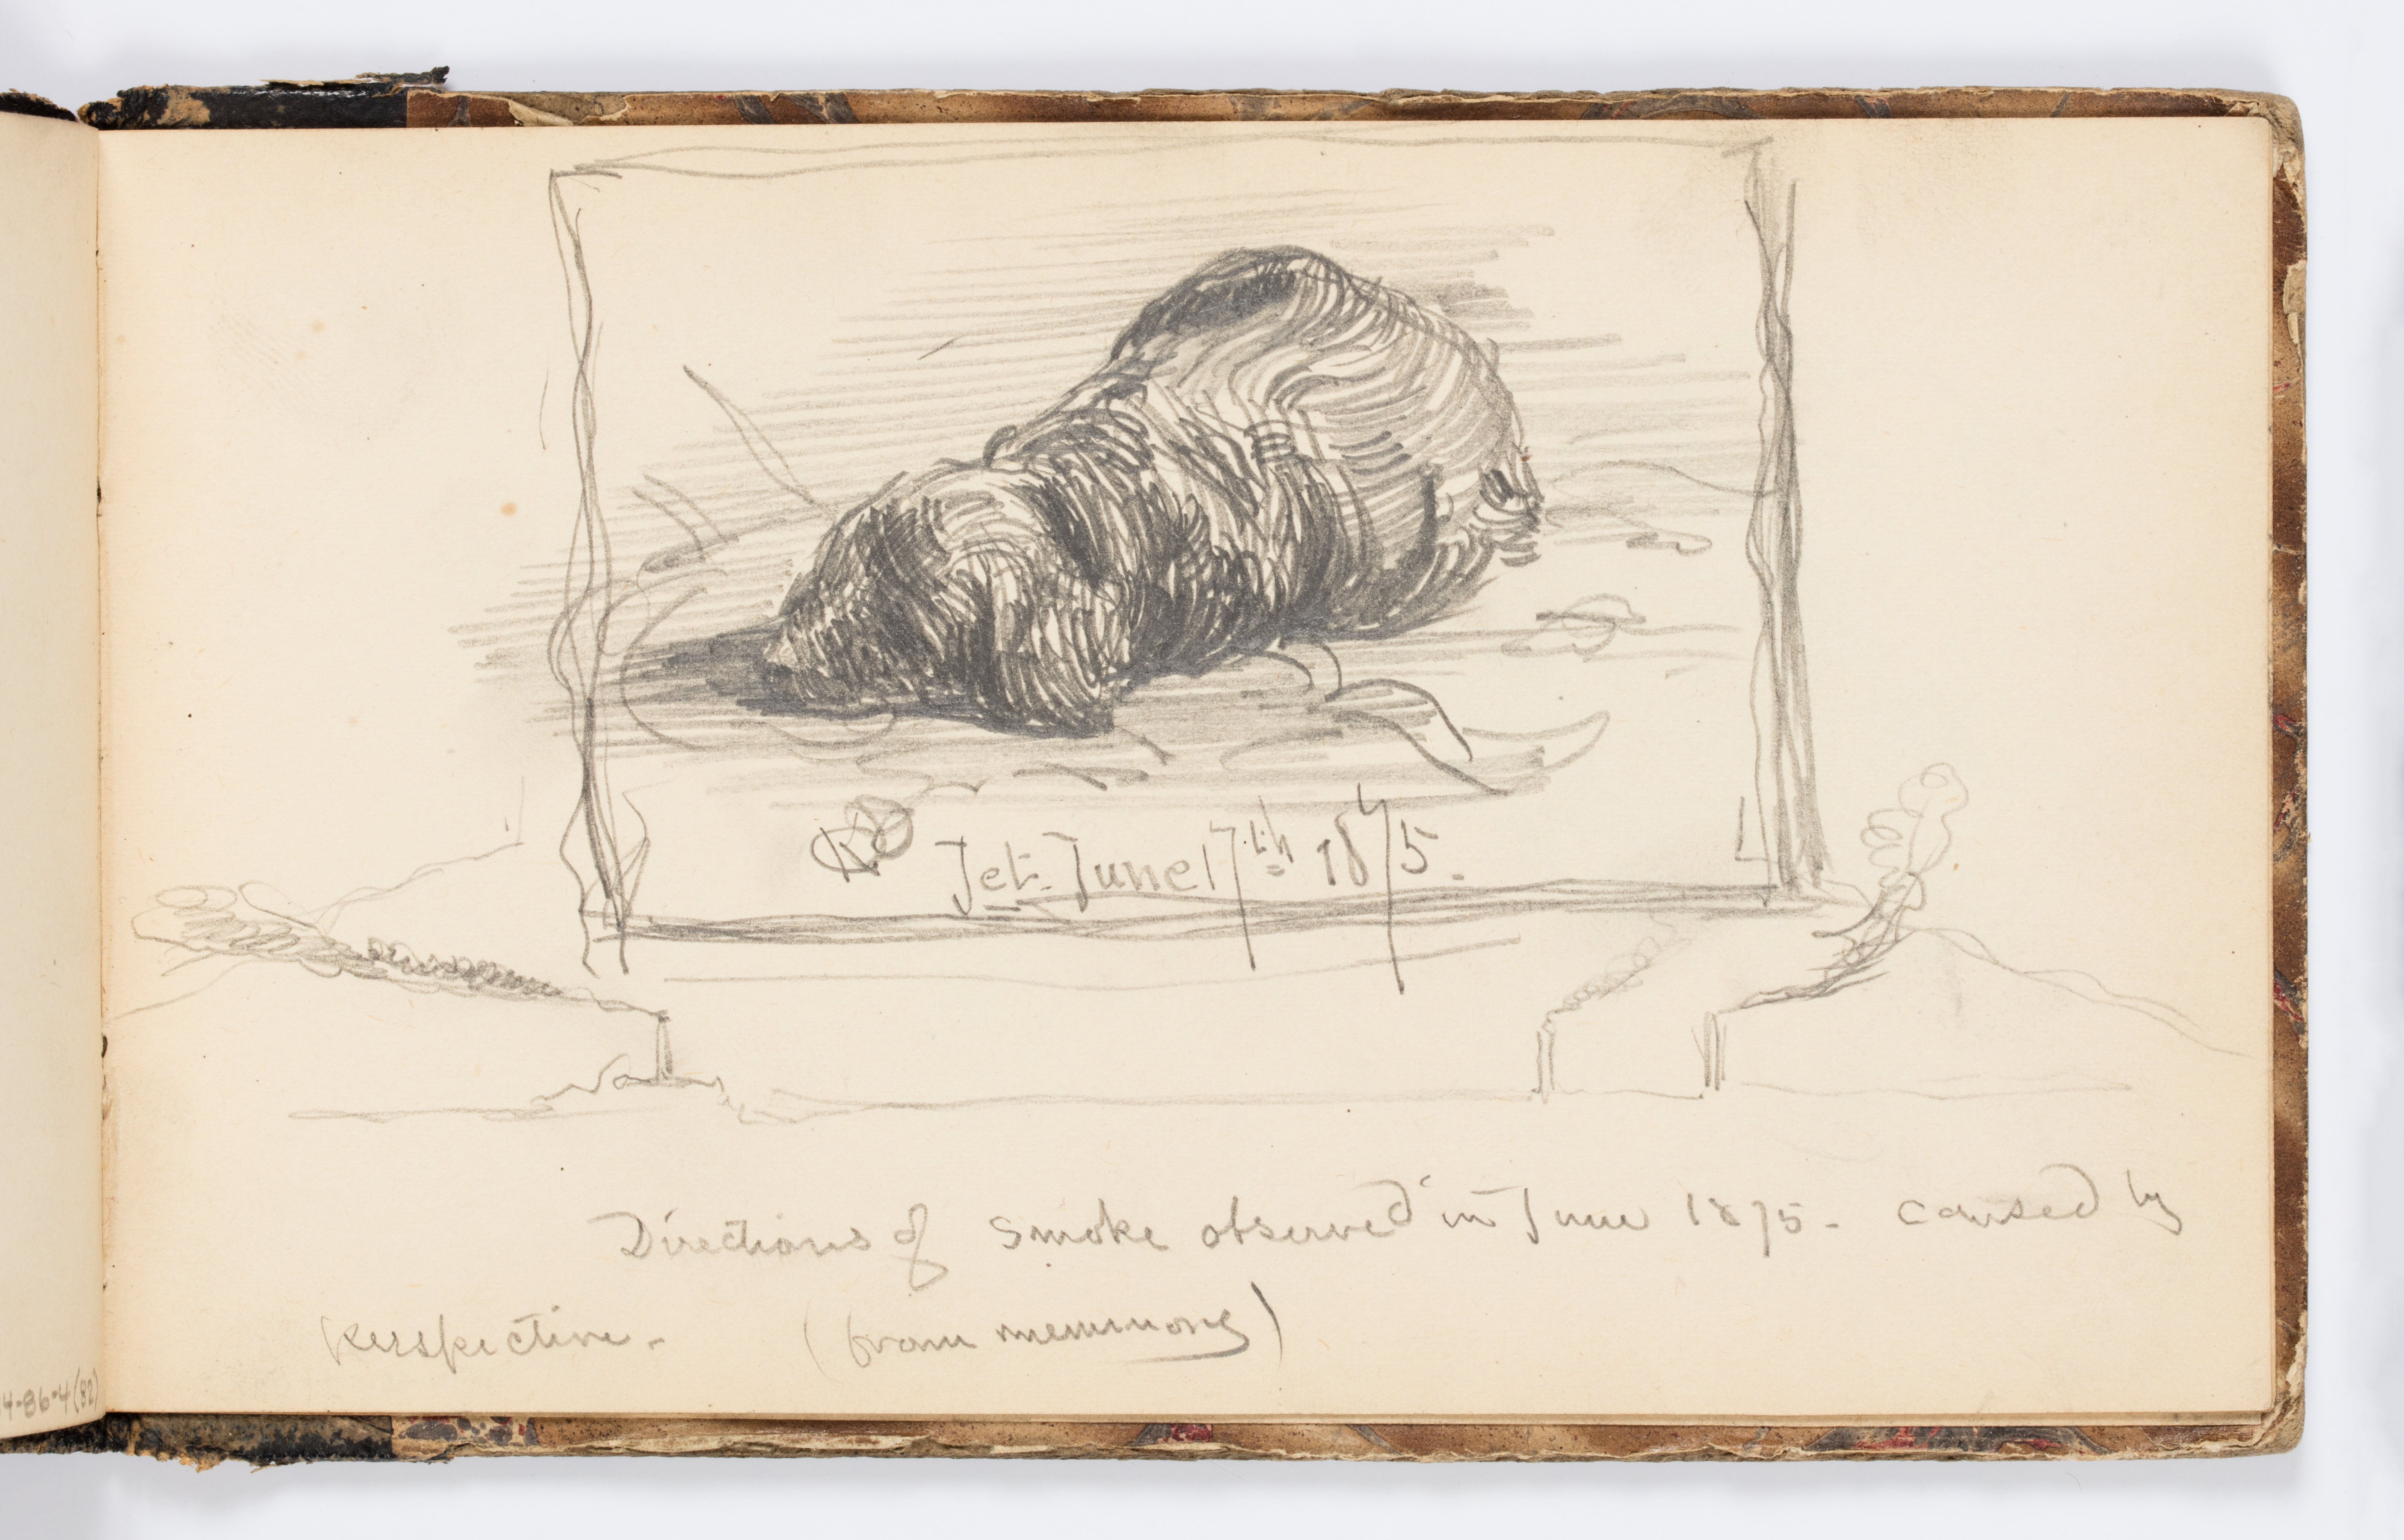 Jet. June 17th 1875.
Directions of smoke observed in June 1875 - caused by
Perspective. (from memmory)
4-86-4(82)